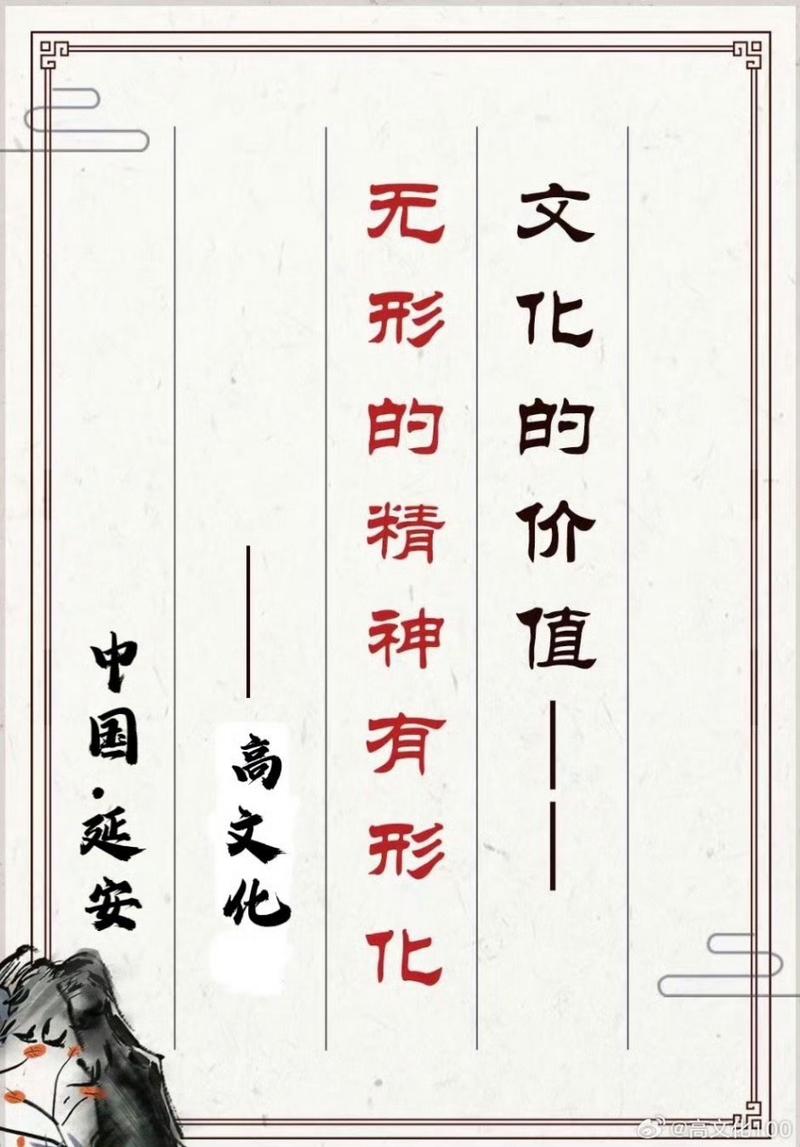 文化的价值——
无形的精神有形化
—高文化
中国·延安
@高文化100